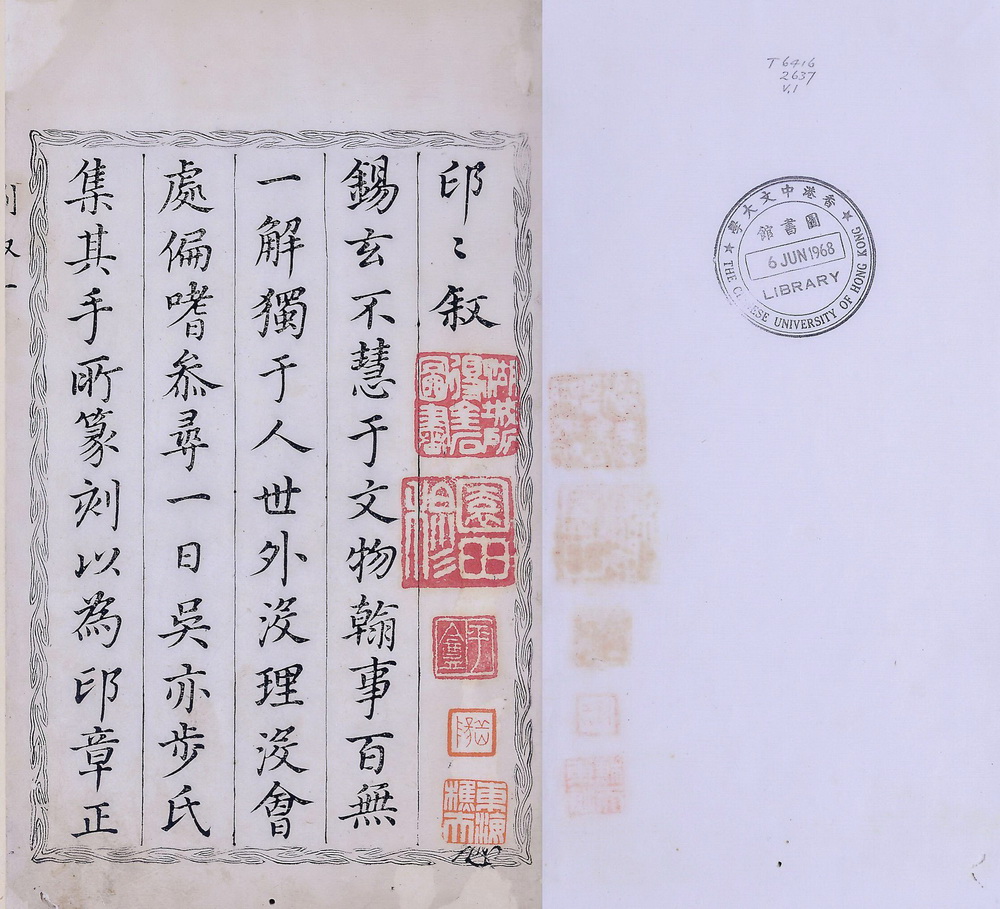 T6416
2637
V.1
香港中文大學
圖書館
6 JUN 1968
LIBRARY
THE CHINESE UNIVERSITY OF HONG KONG
印〻叙
湖城所得金石圖書
園田
平盦
錫玄不慧于文物翰事百無
一解獨于人世外沒理沒會
處偏嗜叅尋一日吳亦步氏
集其手所篆刻以為印章正